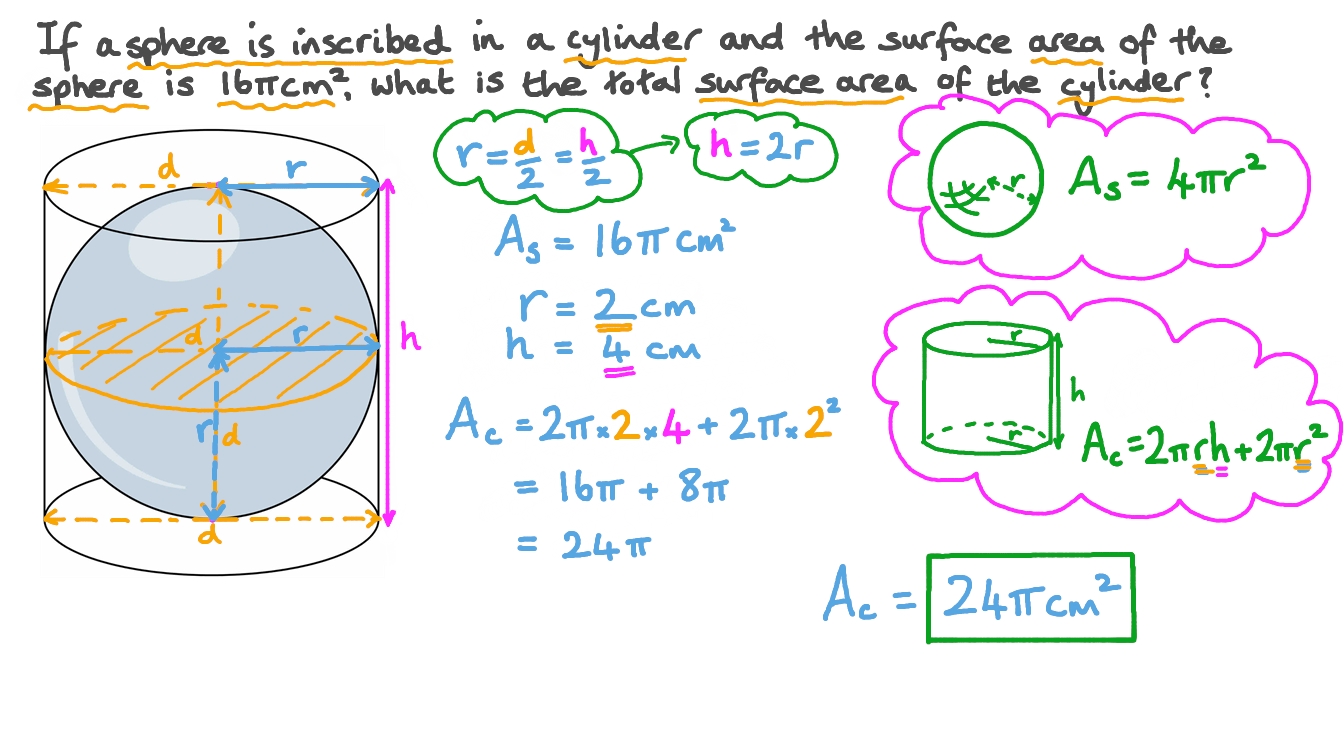 If a sphere is inscribed in a cylinder and the surface area of the
sphere is 16πcm², what is the total surface area of the cylinder?
d
r
d
r
r
d
d
h
r = d/2 = h/2
h = 2r
Aₛ = 16π cm²
r = 2 cm
h = 4 cm
A꜀ = 2π × 2 × 4 + 2π × 2²
= 16π + 8π
= 24π
r
Aₛ = 4πr²
r
h
r
A꜀ = 2πrh + 2πr²
A꜀ = 24π cm²